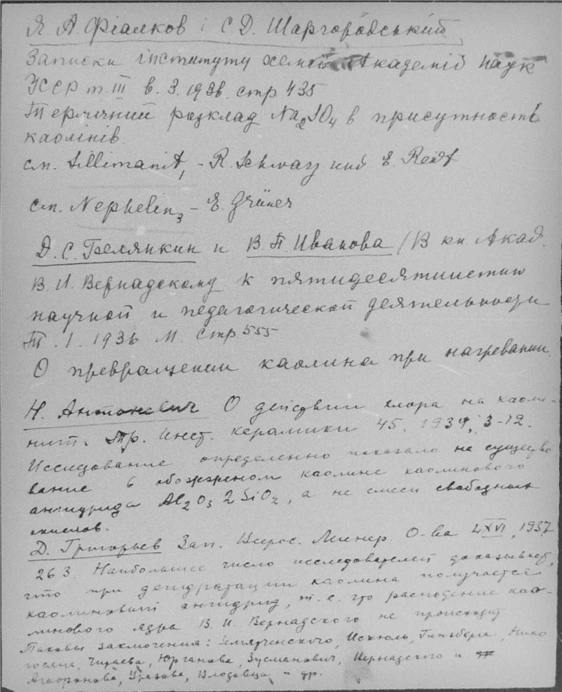 Я. А. Фіалков і С. Д. Шаргородський
Записки інституту хемії Академії наук
УССР т. III в. 3. 1936. стр 435
Термічний розклад Na2SO4 в присутность
каолінів
см. Sillimanit, - R. Schwarz und E. Reidt
см. Nephelin3 - E. Grüner
Д. С. Белянкин и В. П. Иванова / В кн Акад.
В. И. Вернадскому к пятидесятилетию
научной и педагогической деятельности
Т. 1. 1936 М. Стр 555
О превращении каолина при нагревании.
Н. Антоневич О действии хлора на каоли-
нит. Тр. Инст. керамики 45. 1934, 3-12.
Исследование определенно показало не существо
вание в обожженом каолине каолинового
ангидрида Al2O3 2SiO2, а не смеси свободных
окислов.
Д. Григорьев Зап. Всерос. Минер. О-ва LXVI, 1937
263. Наибольшее число исследователей доказывает,
что при дегидратации каолина получается
каолиновый ангидрид, т. е. что распадение као-
линового ядра В. И. Вернадского не происходит
Таковы заключения: Земятченского, Искюля, Гинзберга, Нико
госяна, Чираева, Юрганова, Зусмановича, Вернадского и др
Агафонова, Уразова, Влодавца и др.